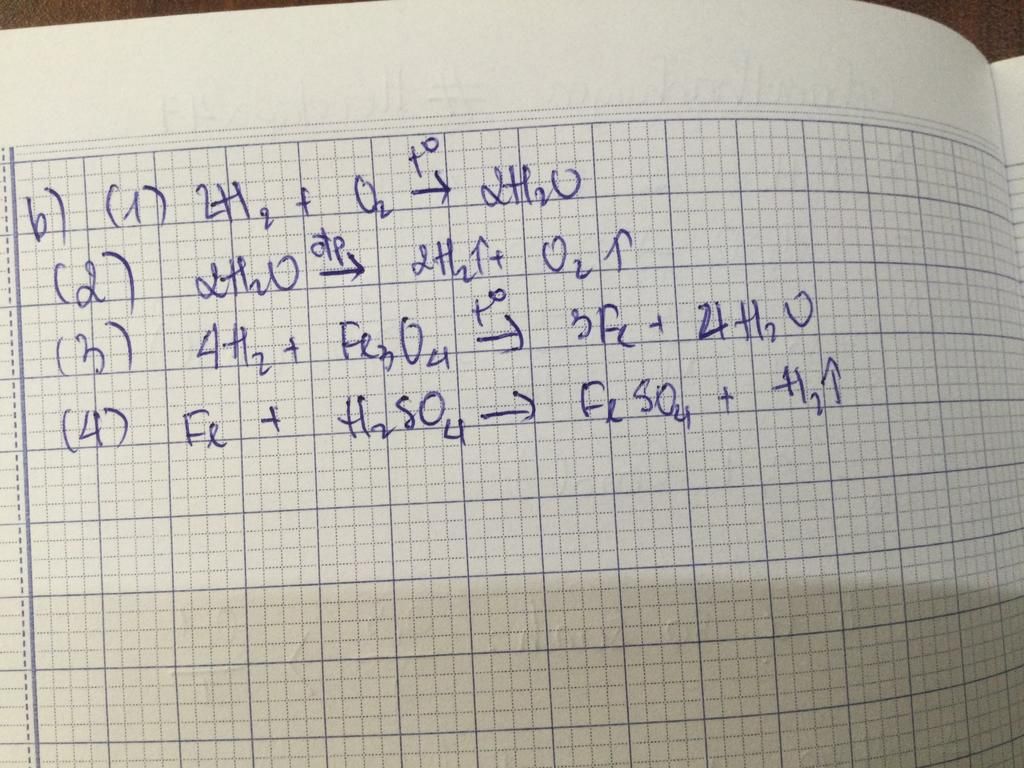 b) (1) 2H₂ + O₂ →(t°) 2H₂O
(2) 2H₂O →(đp) 2H₂↑ + O₂↑
(3) 4H₂ + Fe₃O₄ →(t°) 3Fe + 4H₂O
(4) Fe + H₂SO₄ → FeSO₄ + H₂↑